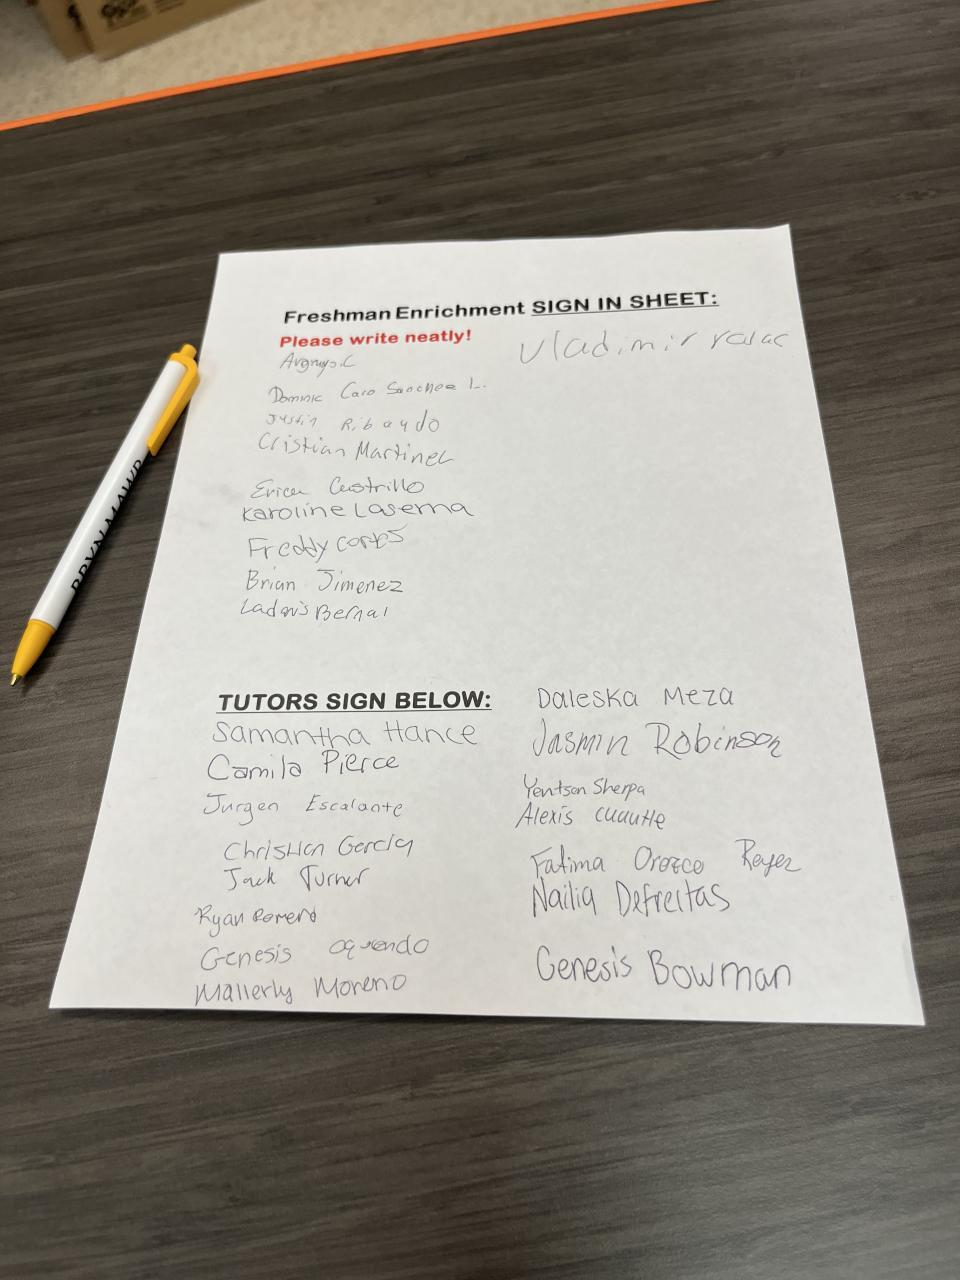 Freshman Enrichment SIGN IN SHEET:
Please write neatly!
Vladimir
Dominic Caro L.
Justin Ribaudo
Cristian Martinez
Erica Castrillo
Karoline Laserna
Freddy cortes
Brian Jimenez
Bernal
BRYN MAWR
TUTORS SIGN BELOW:
Samantha Hance
Camila Pierce
Jurgen Escalante
Christian Garcia
Jack Turner
Ryan Romero
Genesis Oquendo
Mallerly Moreno
Daleska Meza
Jasmin Robinson
Yentsen Sherpa
Alexis cuautle
Fatima Orozco Reyez
Nailia Defreitas
Genesis Bowman